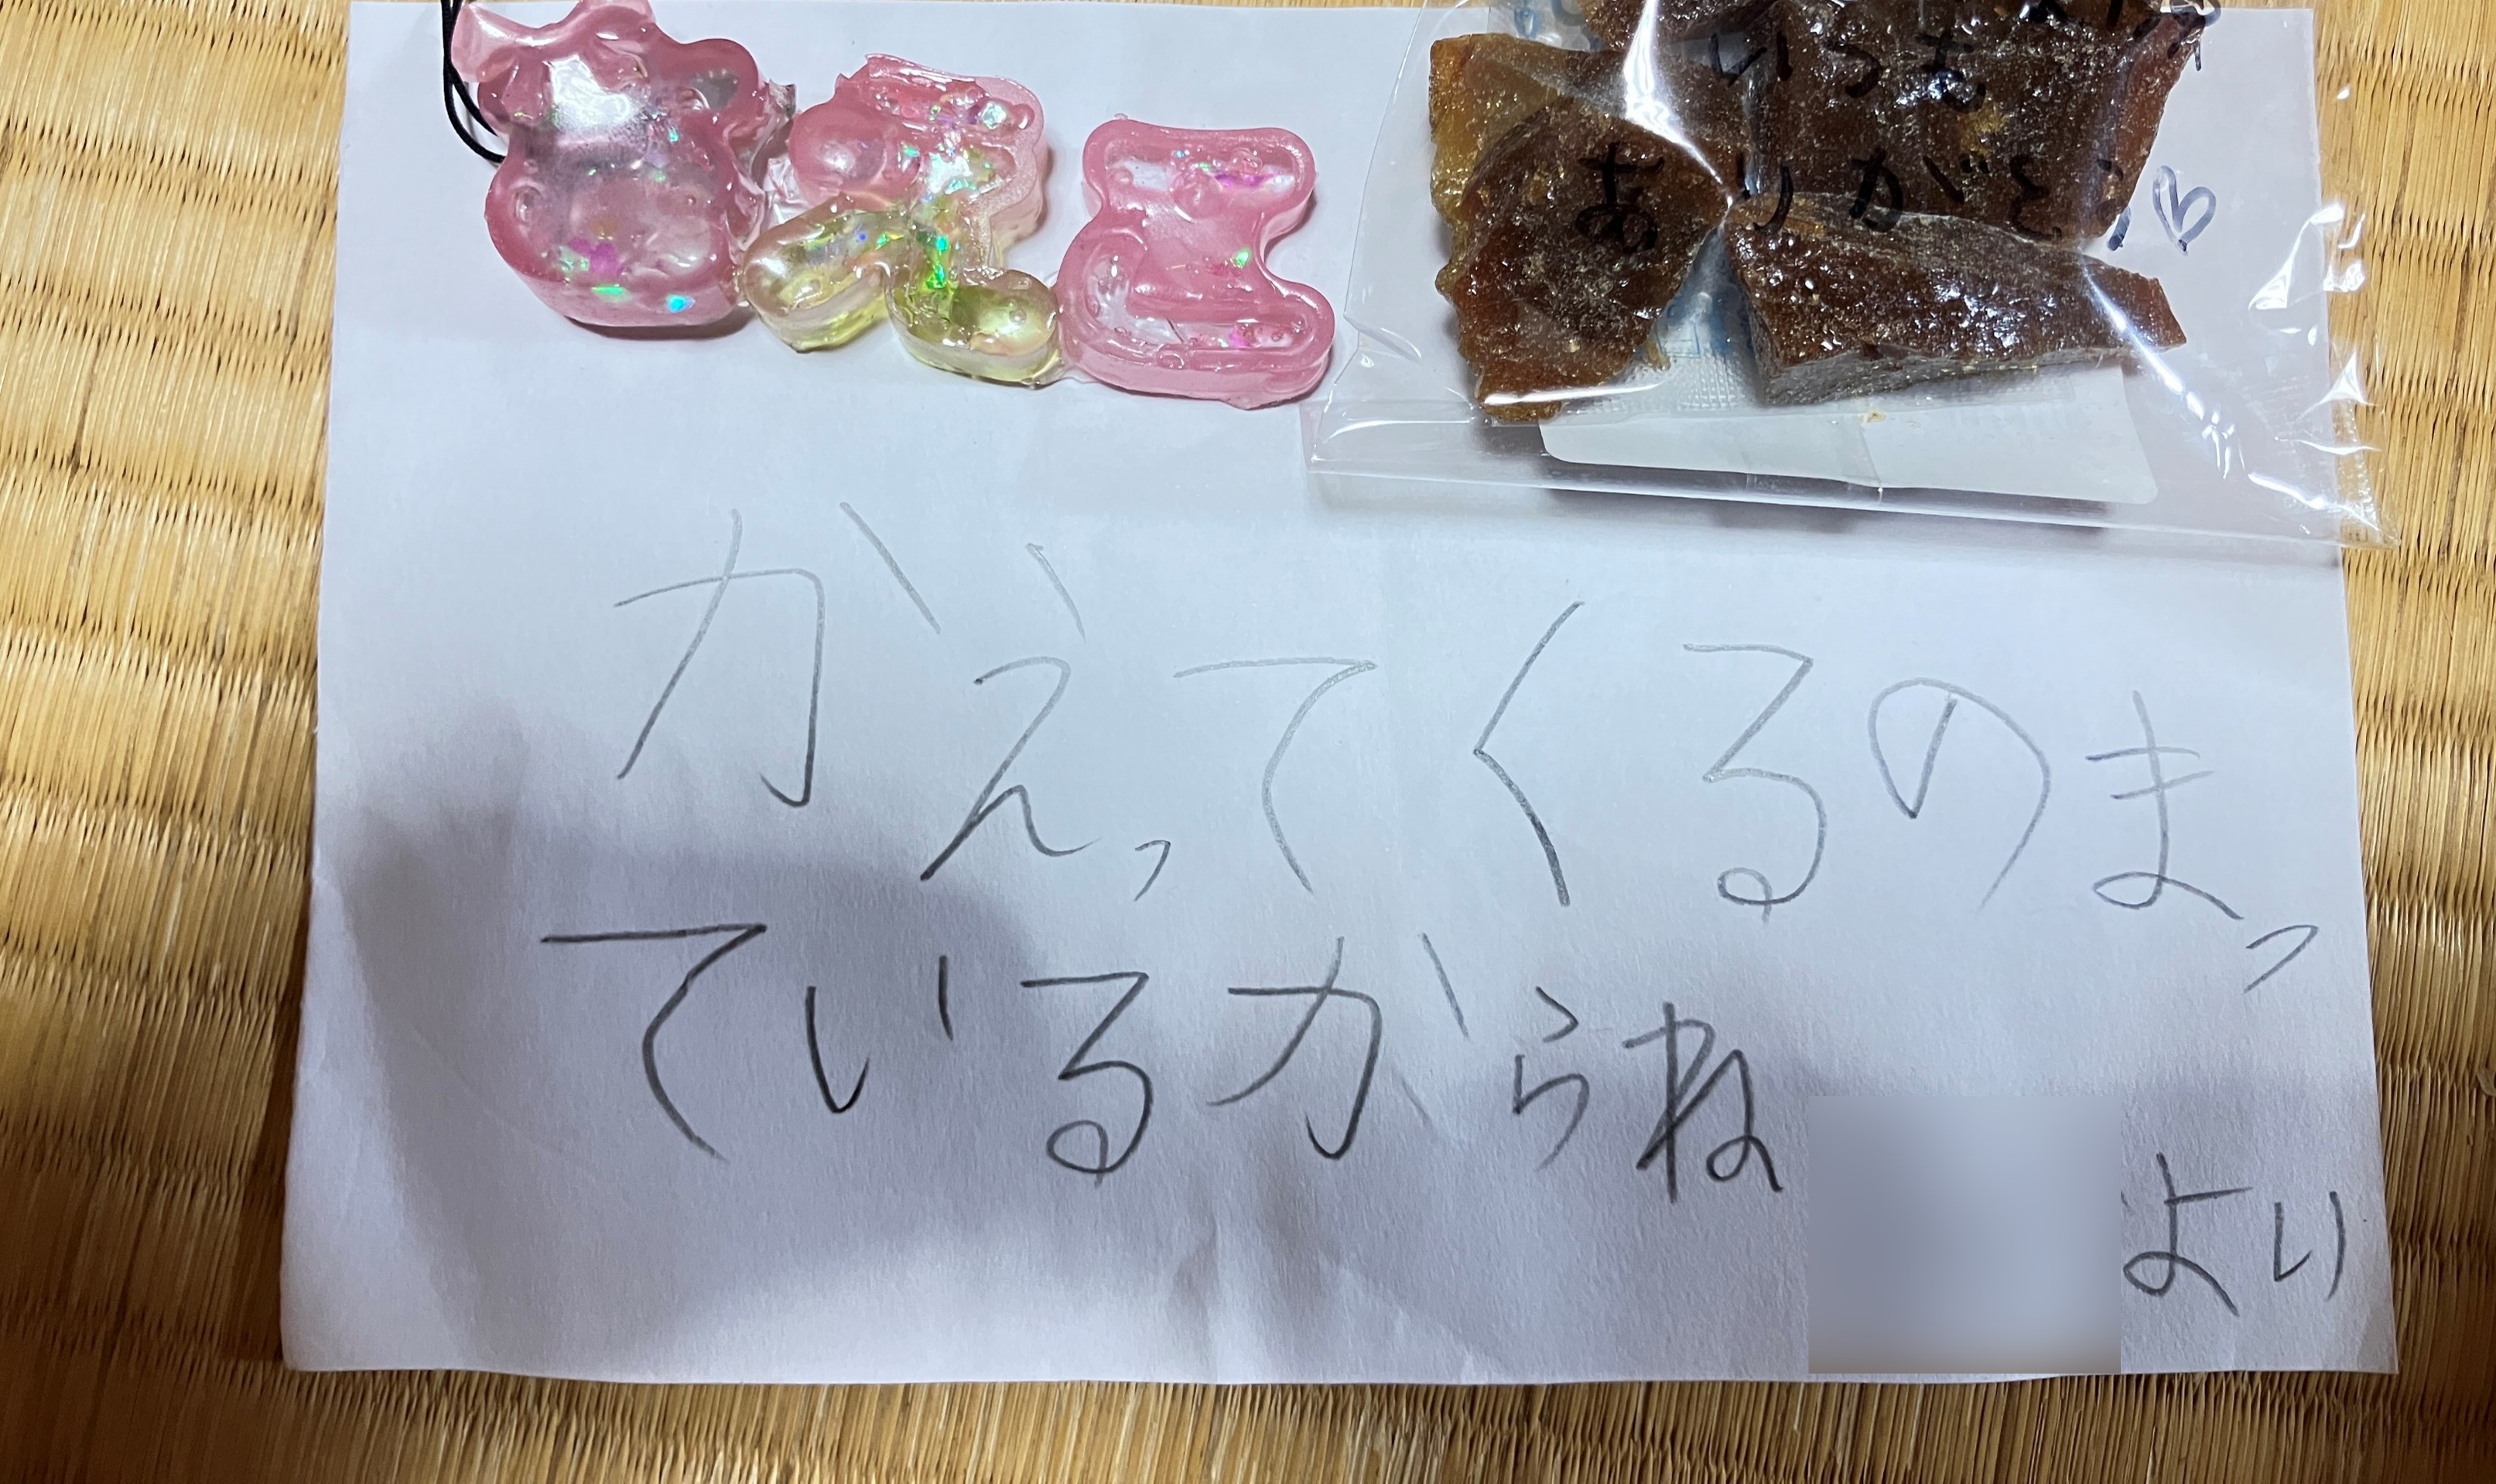 いつも
ありがとう♡
かえってくるのまっ
ているからね
より